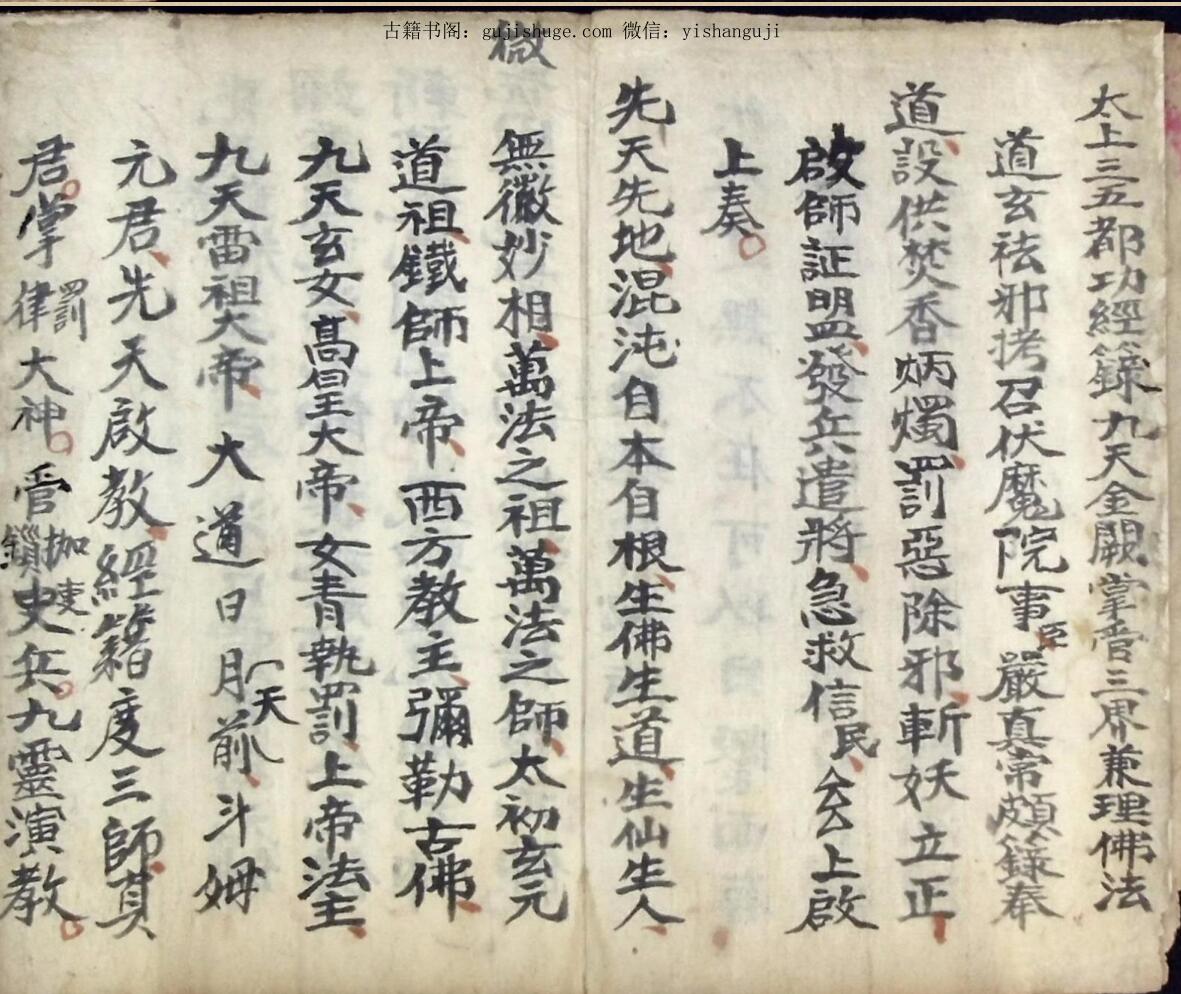 古籍书阁：gujishuge.com 微信：yishanguji
太上三五都功經籙九天金闕掌管三界兼理佛法
道玄祛邪拷召伏魔院事臣嚴真常頗籙奉
道設供焚香炳燭罰惡除邪斬妖立正
啟師証明盟發兵遣將急救信民厶上啟
上奏
先天先地混沌自本自根生佛生道生仙生人
微
無徽妙相萬法之祖萬法之師太初玄元
道祖鐵師上帝西方教主彌勒古佛
九天玄女高皇大帝女青執罰上帝法主
九天雷祖大帝大道日月前天斗姆
元君先天啟教經籍度三師真
君掌律罰大神管枷鎖吏兵九靈演教